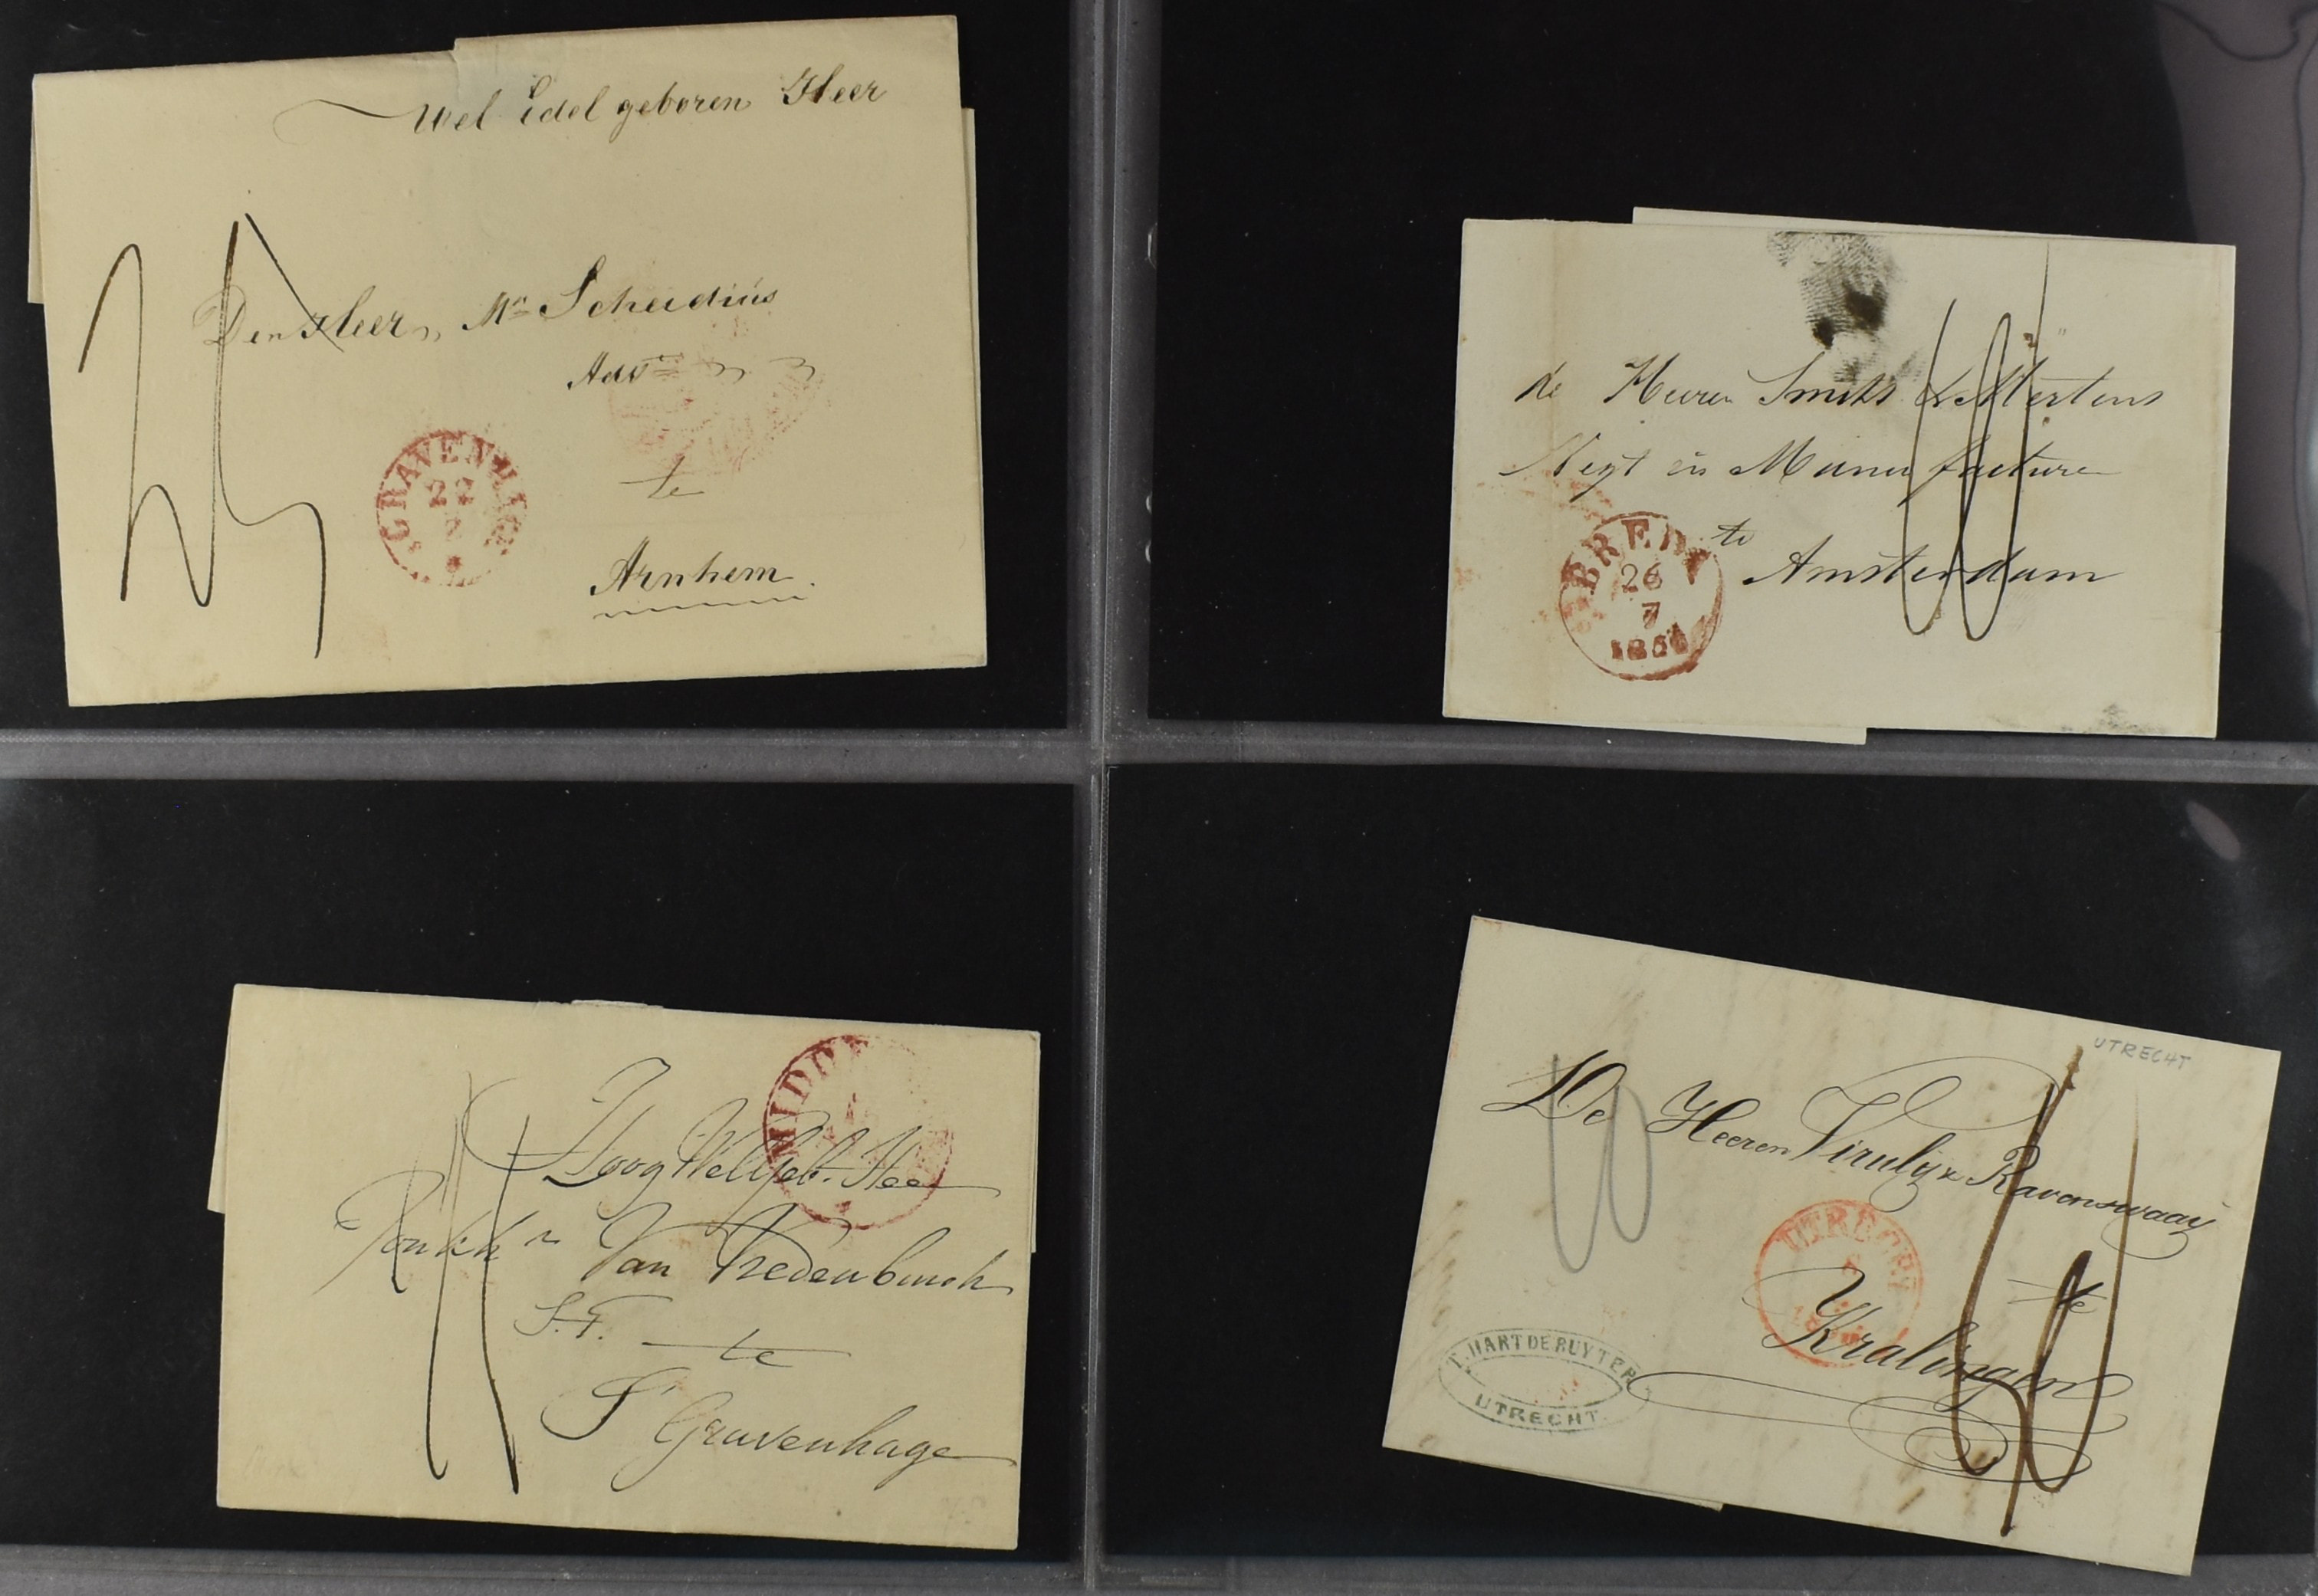 Wel Edel geboren Heer
Den Heer, Mr Scheidius
Advt
te
Arnhem.
GRAVENHAGE
22
de Heeren Smits & Mertens
Negt in Manufacturen
te
Amsterdam
BREDA
26
7
Hoog Welgeb. Heer
Jonkhr Van Vredenburch
S.T. te
S' Gravenhage
UTRECHT
De Heeren Viruly & Ravenswaaij
te
Kralingen
UTRECHT
T. HART DE RUYTER
UTRECHT